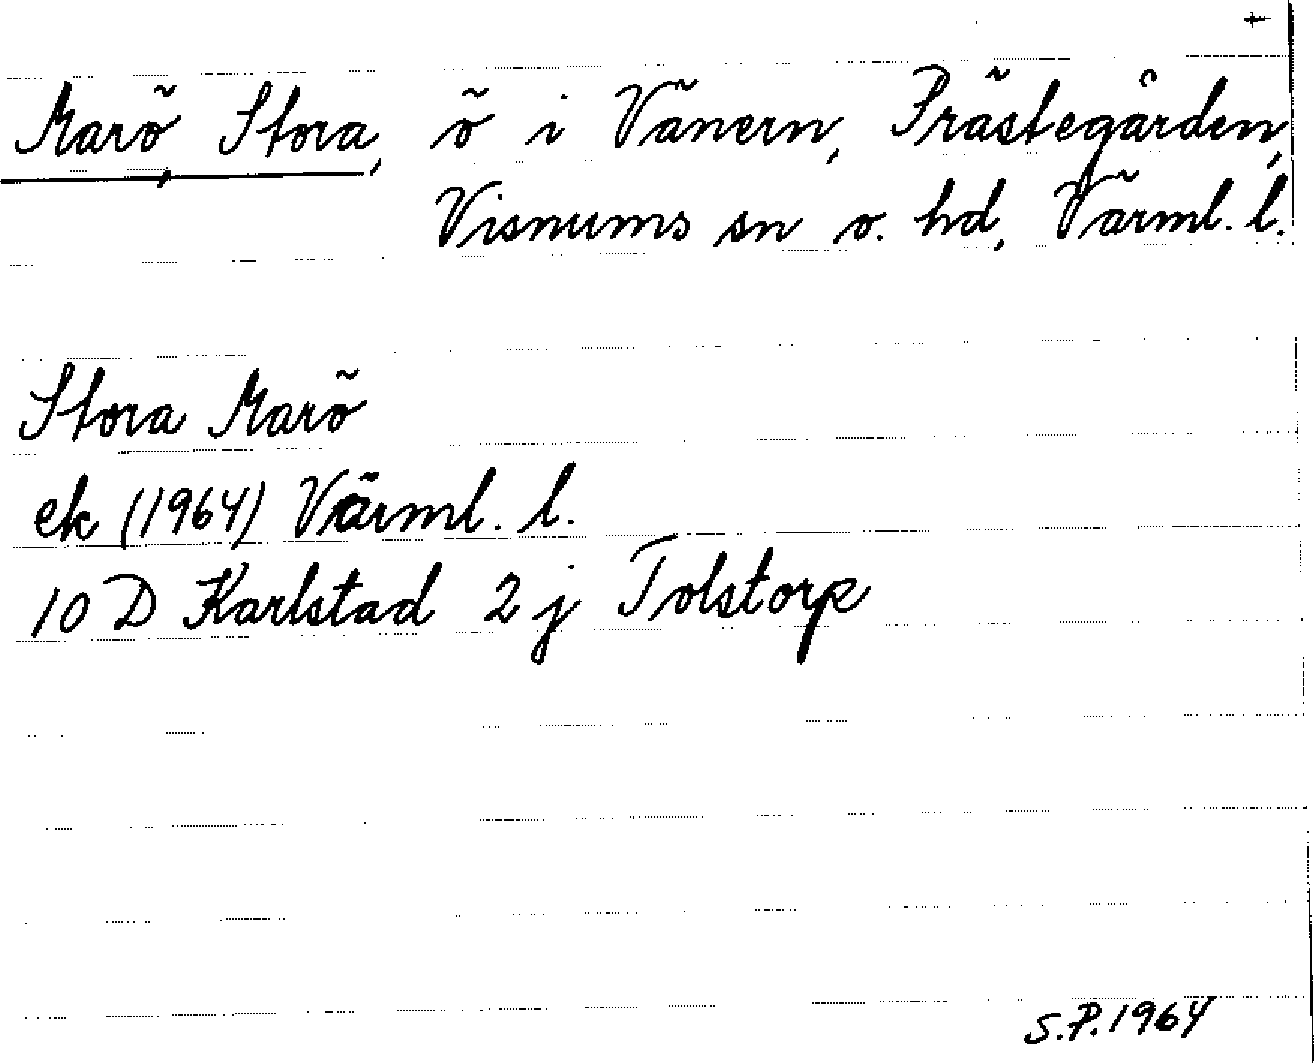 Marö, Stora, ö i Vänern, Prästegården,
Visnums sn o. hd, Värml. l.
Stora Marö
ek (1964) Värml. l.
10 D Karlstad 2 j Tolstorp
S.P. 1964